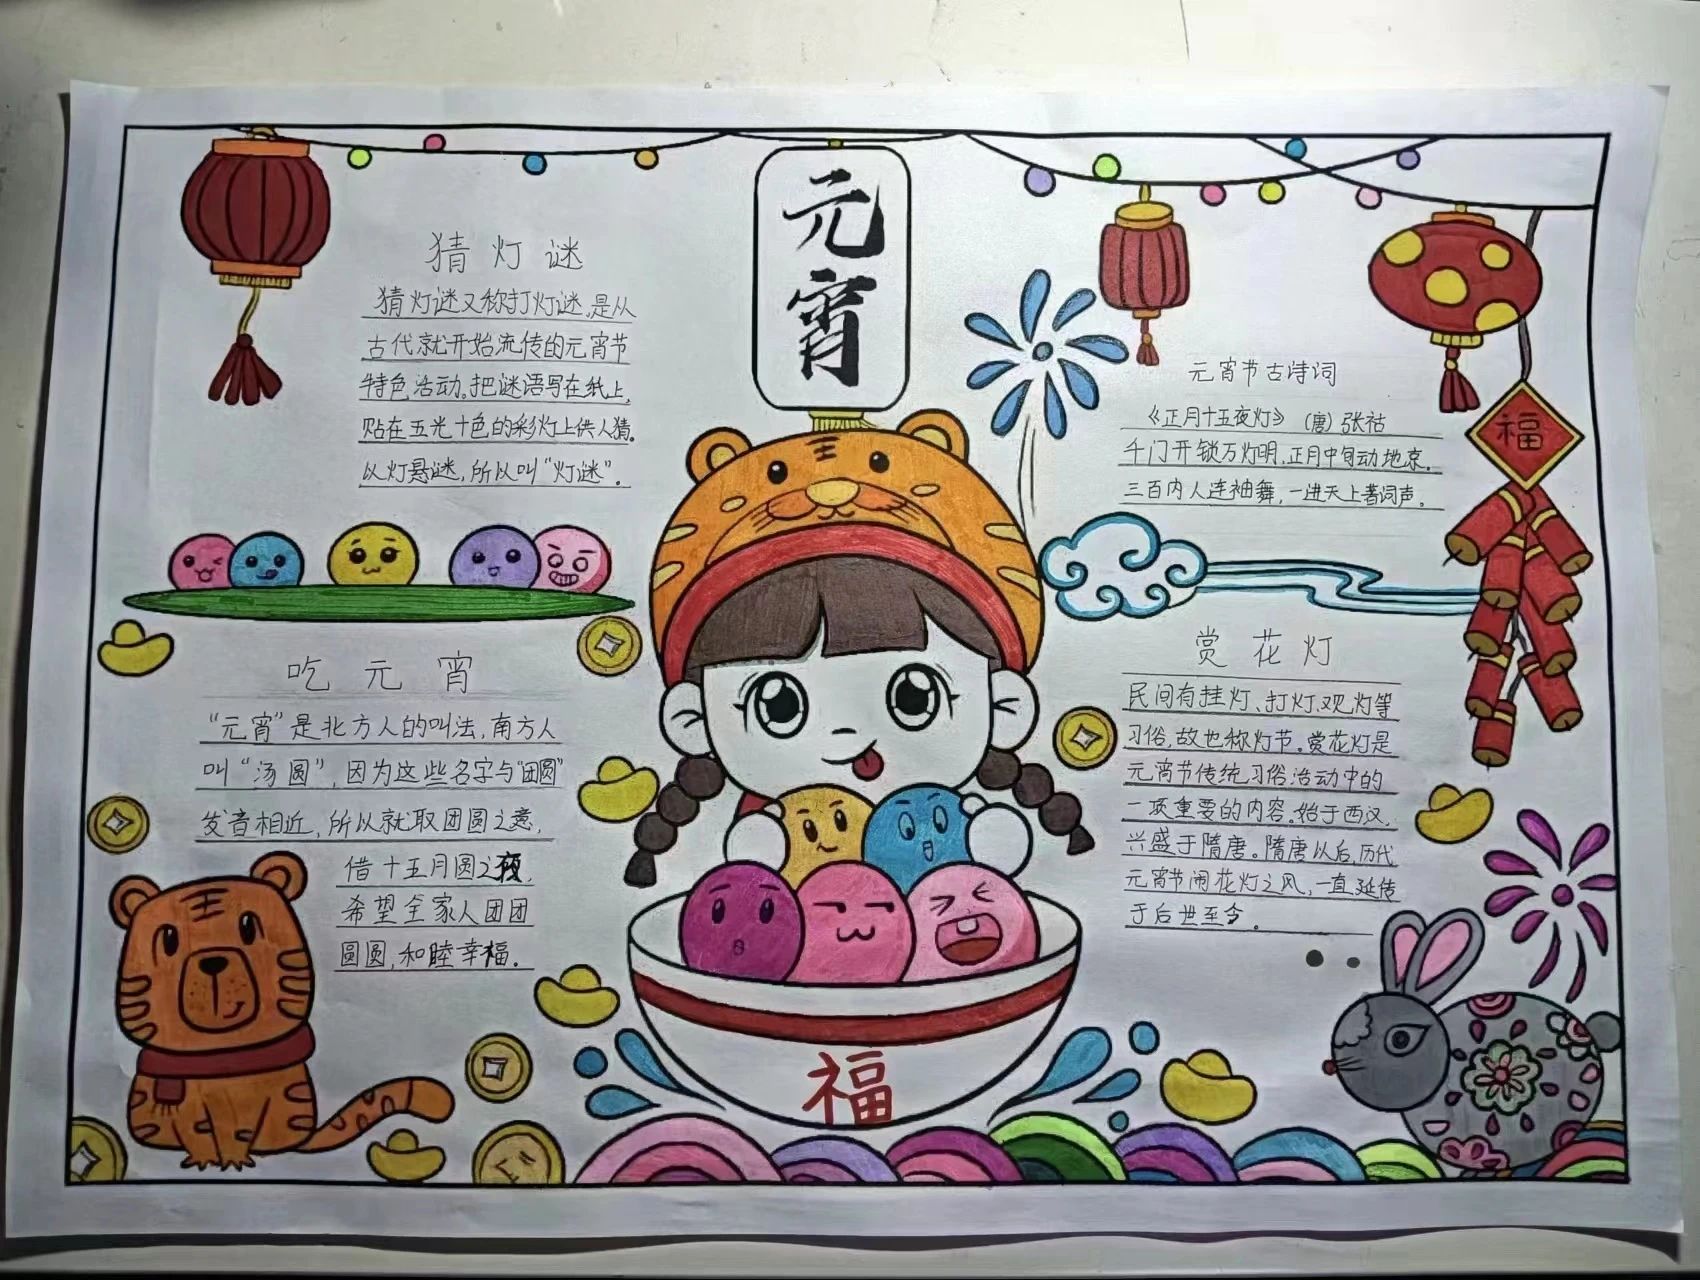 元宵
猜灯谜
猜灯谜又称打灯谜,是从
古代就开始流传的元宵节
特色活动。把谜语写在纸上,
贴在五光十色的彩灯上供人猜。
以灯悬谜,所以叫“灯谜”。
吃元宵
“元宵”是北方人的叫法,南方人
叫“汤圆”,因为这些名字与“团圆”
发音相近,所以就取团圆之意,
借十五月圆之夜,
希望全家人团团
圆圆,和睦幸福。
元宵节古诗词
《正月十五夜灯》 (唐)张祜
千门开锁万灯明,正月中旬动地京。
三百内人连袖舞,一进天上著词声。
福
赏花灯
民间有挂灯、打灯、观灯等
习俗,故也称灯节。赏花灯是
元宵节传统习俗活动中的
一项重要的内容。始于西汉,
兴盛于隋唐。隋唐以后,历代
元宵节闹花灯之风,一直延传
于后世至今。
福